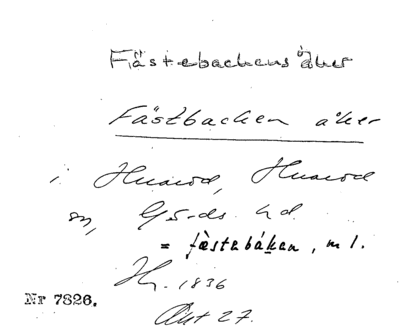 Fästebackens åker
Fästbacken åker
i Huaröd, Huaröd
sn, Gärds hd.
= fæstabákan, m l.
Hr. 1836
Akt 27.
Nr 7826.